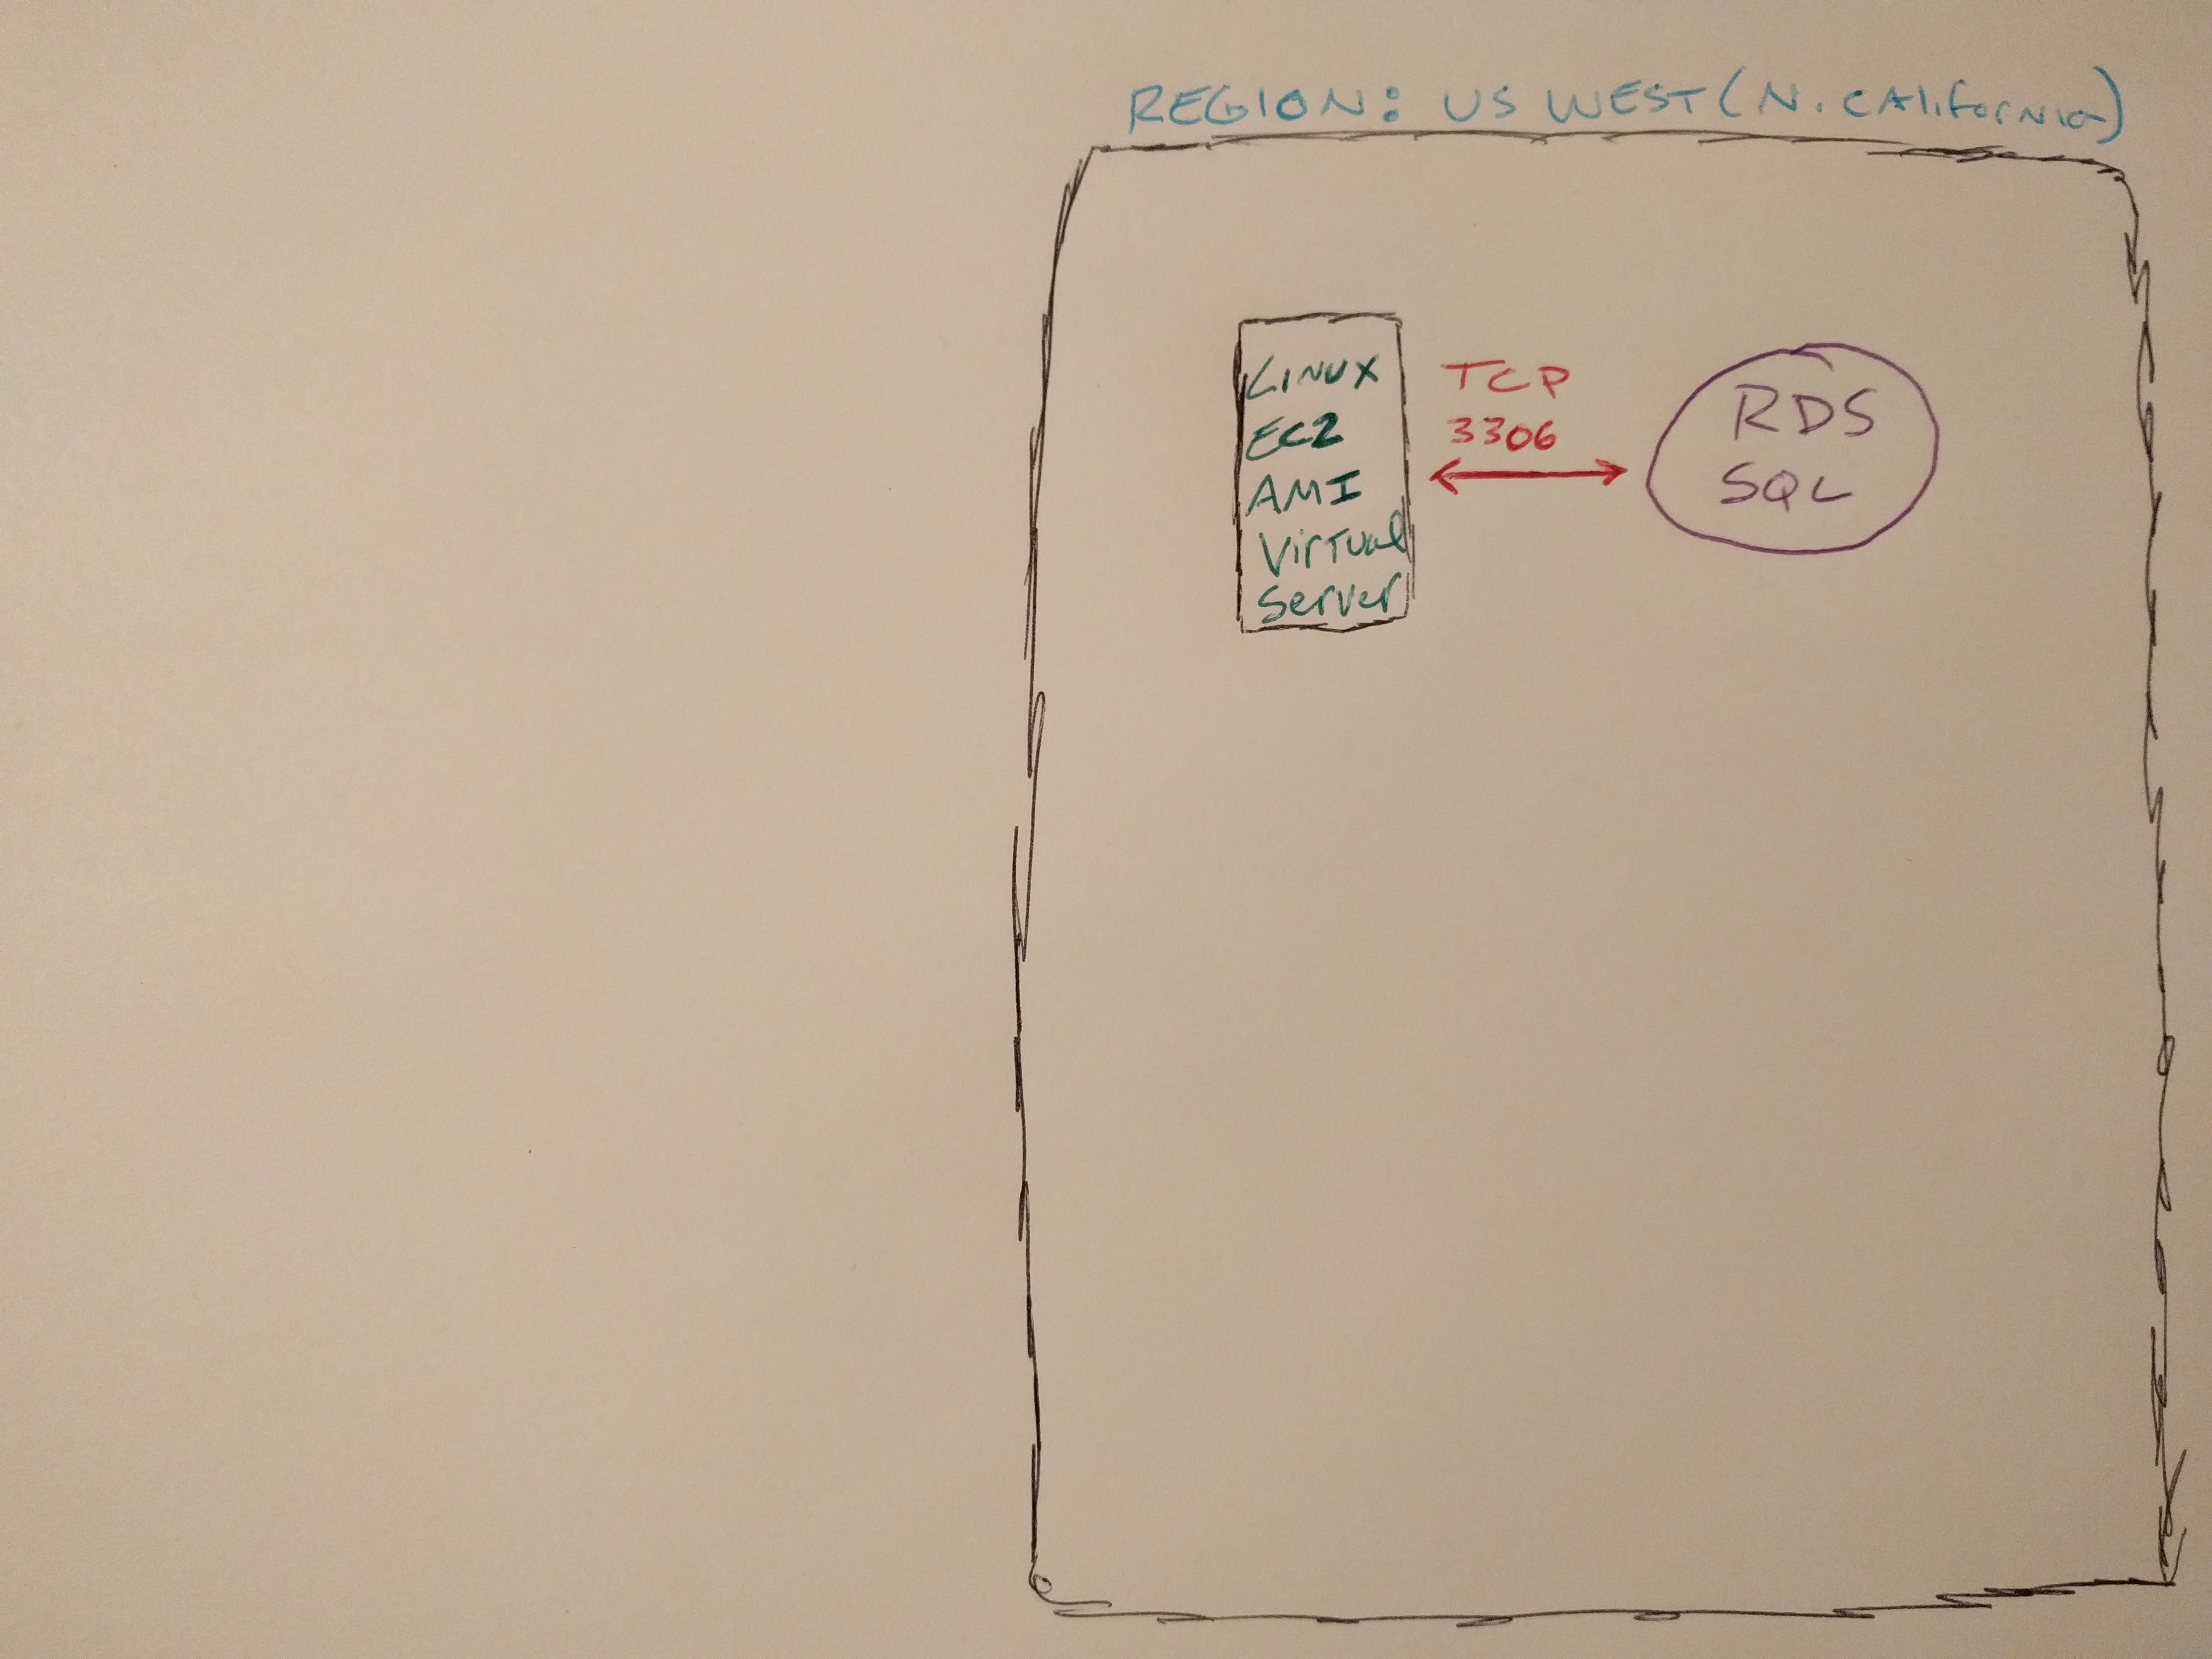 REGION: US WEST (N. CAliforNia)
LINUX
EC2
AMI
VirTual
Server
TCP
3306
RDS
SQL